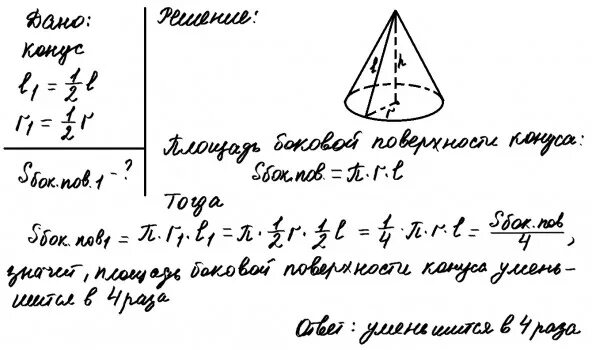 Дано:
конус
l₁ = 1/2 l
r₁ = 1/2 r
Sбок.пов.1 - ?
Решение:
l
h
r
Площадь боковой поверхности конуса:
Sбок.пов. = π · r · l
Тогда
Sбок.пов1 = π · r₁ · l₁ = π · 1/2 r · 1/2 l = 1/4 · π · r · l = Sбок.пов/4 ,
значит, площадь боковой поверхности конуса умень-
шится в 4 раза
Ответ: уменьшится в 4 раза